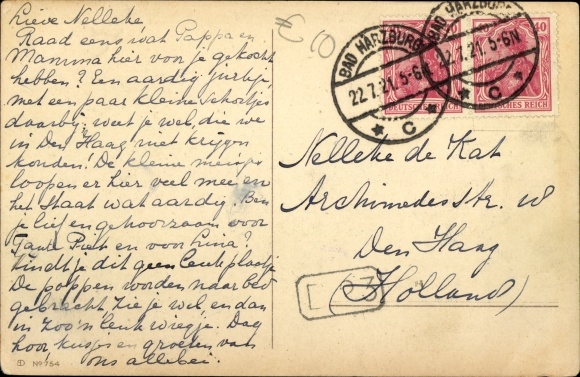 Lieve Nelleke
Raad eens wat Pappa en
Mamma hier voor je gekocht
hebben? Een aardig jurkje,
met een paar kleine schortjes
daarbij, weet je wel, die we
in Den Haag niet krijgen
konden! De kleine meisjes
loopen er hier veel mee en
het staat wat aardig. Ben
je lief en gehoorzaam voor
Tante Piet en voor Lina?
Vindt je dit geen leuk plaatje
De poppen worden naar bed
gebracht, zie je wel, en dan
in zoo'n leuk wiegje. Dag
hoor kusjes en groeten van
ons allebei.
No 754
BAD HARZBURG
22.7.21. 5-6N
* C *
BAD HARZBURG
22.7.21. 5-6N
* C *
40
DEUTSCHES REICH
DEUTSCHES REICH
Nelleke de Kat
Archimedesstr. 18
Den Haag
(Holland)